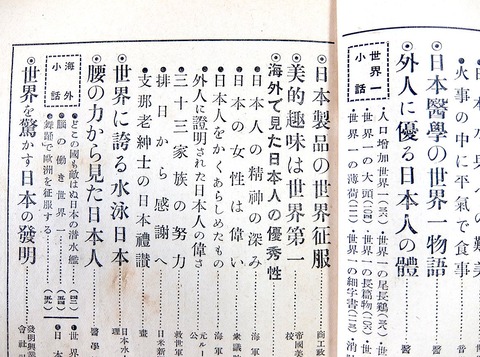 ●火事の中に平氣で食事
◎日本醫學の世界一物語
◎外人に優る日本人の體
世界一
小話
・人口增加世界一 ・世界の尾長鷄 ・世
・世界一の大頭 ・世界一の長篇物 ・世界
・世界一の薄荷 ・世界一の細字書 ・消
◎日本製品の世界征服……商工政
◎美的趣味は世界第一……帝國美校
◎海外で見た日本人の優秀性
●日本人の精神の深み……海軍
●日本の女性は偉い……衆議
●日本人をかくあらしめたもの……海軍
●外人に證明された日本人の偉さ……元ルー公
●三十三家族の努力……救世軍
●排日から感謝へ……日米新
●支那老紳士の日本禮讃……畫
◎世界に誇る水泳日本……日本水理
◎腰の力から見た日本人……醫學
海外
小話
●どこの國も敵はぬ日本の潜水艦 ●世界
●腦の働き世界一 ●日本
●舞踊で歐洲を征服する
◎世界を驚かす日本の發明……發明興業會社